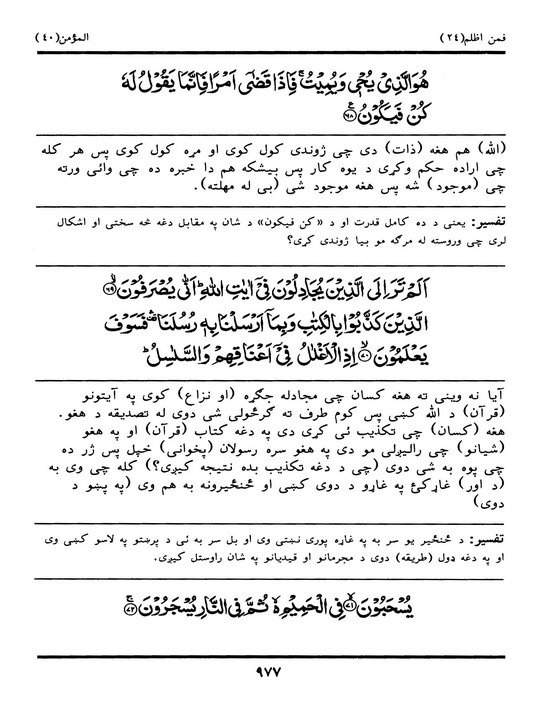 فمن اظلم(۲۴)
المؤمن(۴۰)
هُوَ الَّذِیْ یُحْیٖ وَ یُمِیْتُ ۚ فَاِذَا قَضٰۤی اَمْرًا فَاِنَّمَا یَقُوْلُ لَهٗ
كُنْ فَیَكُوْنُ ۟۶۸
(الله) هم هغه (ذات) دی چی ژوندی کول کوی او مړه کول کوی پس هر کله
چی اراده حکم وکړی د یوه کار پس بیشکه هم دا خبره ده چی وائی ورته
چی (موجود) شه پس هغه موجود شی (بی له مهلته).
تفسیر: یعنی د ده کامل قدرت او د «کن فیکون» د شان په مقابل دغه څه سختی او اشکال
لری چی وروسته له مرګه مو بیا ژوندی کړی؟
اَلَمْ تَرَ اِلَی الَّذِیْنَ یُجَادِلُوْنَ فِیْۤ اٰیٰتِ اللّٰهِ ؕ اَنّٰی یُصْرَفُوْنَ ۟۶۹
الَّذِیْنَ كَذَّبُوْا بِالْكِتٰبِ وَ بِمَاۤ اَرْسَلْنَا بِهٖ رُسُلَنَا ۛ۫ فَسَوْفَ
یَعْلَمُوْنَ ۟۷۰ اِذِ الْاَغْلٰلُ فِیْۤ اَعْنَاقِهِمْ وَ السَّلٰسِلُ ؕ
آیا نه وینی ته هغه کسان چی مجادله جګړه (او نزاع) کوی په آیتونو
(قرآن) د الله کښی پس کوم طرف ته ګرځولی شی دوی له تصدیقه د هغو.
هغه (کسان) چی تکذیب ئی کړی دی په دغه کتاب (قرآن) او په هغو
(شیانو) چی رالیږلی مو دی په هغو سره رسولان (پخوانی) خپل پس ژر ده
چی پوه به شی دوی (چی د دغه تکذیب بده نتیجه کیږی؟) کله چی وی به
(د اور) غاړکئ په غاړو د دوی کښی او ځنځیرونه به هم وی (په پښو د
دوی)
تفسیر: د ځنځیر یو سر به په غاړه پوری نښتی وی او بل سر به ئی د پرښتو په لاسو کښی وی
او په دغه ډول (طریقه) دوی د مجرمانو او قیدیانو په شان راوستل کیږی.
یُسْحَبُوْنَ ۟۷۱ فِی الْحَمِیْمِ ۬ۙ ثُمَّ فِی النَّارِ یُسْجَرُوْنَ ۟۷۲
۹۷۷